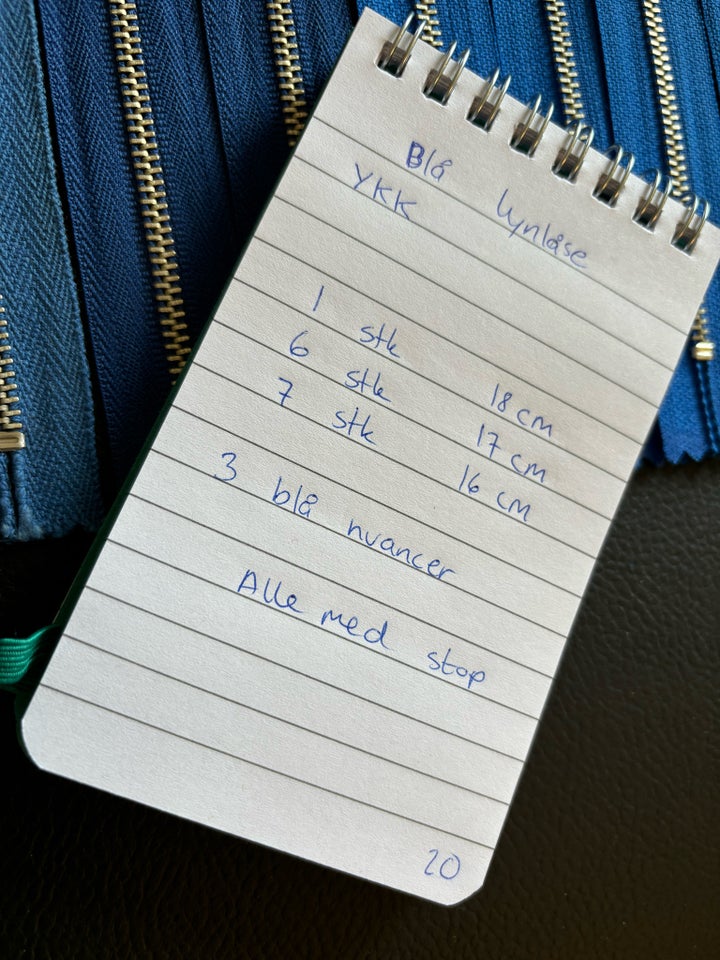 Blå lynlåse
YKK
1 stk 18 cm
6 stk 17 cm
7 stk 16 cm
3 blå nuancer
Alle med stop
20